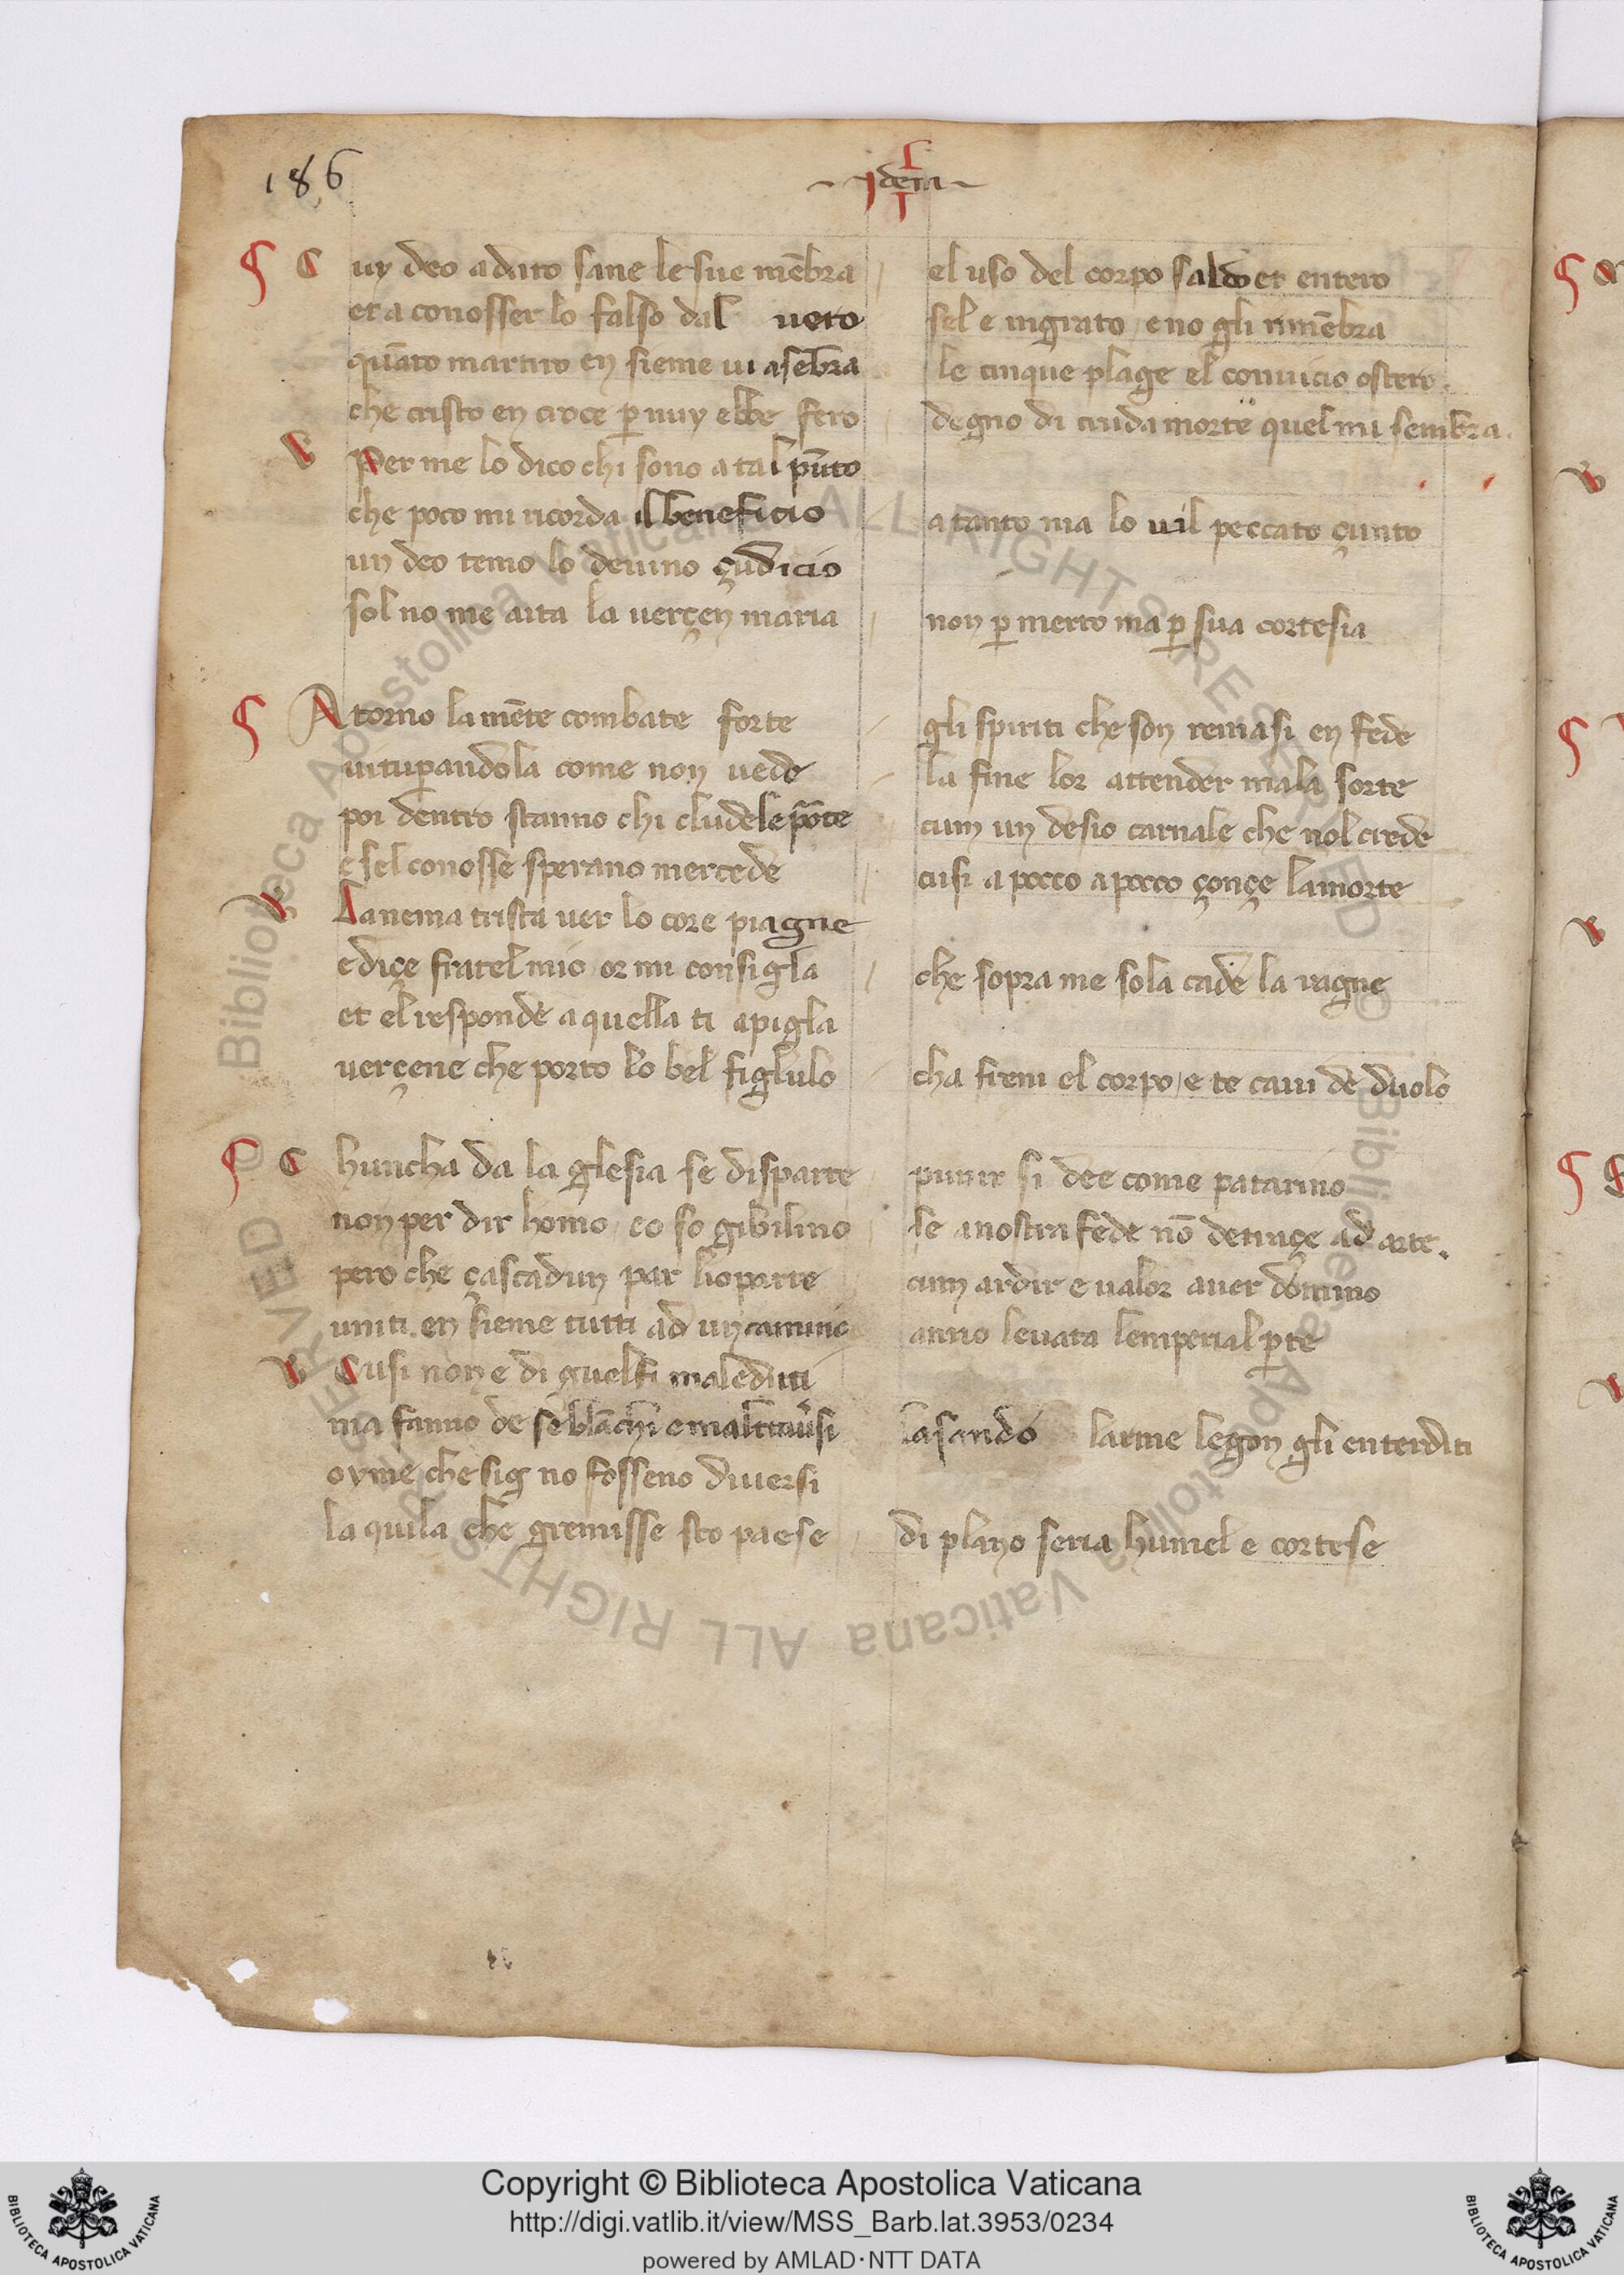 186
Idem
Cuy deo a dato sane le sue mēbra
el uso del corpo saldo et entero
et a conosser lo falso dal uero
sel e ingrato e no gli rimēbra
quāto martiro en sieme ui asēbra
le cinque plage el conuicio ostero.
che cristo en croce p nuy ebbe fero
degno di cruda morte quel mi sembra.
Per me lo dico chi sono a tal pūto
che poco mi ricorda il beneficio
a tanto ma lo uil peccato çunto
un deo temo lo deuino çudicio
sol no me aita la uerçen maria
non p merto ma p sua cortesia
Atorno la mēte combate forte
gli spiriti che son remasi en fede
uitupandola come non uede
la fine lor attender mala sorte
poi dentro stanno chi clude le porte
cum un desio carnale che nol crede
e sel conosse sperano mercede
cusi a pocco a pocco çonçe la morte
Lanema trista uer lo core piagne
e diçe fratel mio or mi consigla
che sopra me sola cade la ragne
et el responde a quella ti apigla
uerçene che porto lo bel figlulo
cha fireni el corpo e te caui de duolo
Chuncha da la glesia se disparte
punir si dee come patarino
non per dir homo eo so gibilino
le a nostra fede nō detinçe ad arte.
pero che çascadun par lioparte
cum ardir e ualor auer domino
uniti en sieme tutti ad un camino
anno leuata lemperial pte
Cusi non e di guelfi malediti
ma fanno de se blāchi e mal
lasando larme legon gli enterditi
oyme che sig no fosseno diuersi
la quila che gremisse sto paese
di plano seria humel e cortese
Copyright © Biblioteca Apostolica Vaticana
http://digi.vatlib.it/view/MSS_Barb.lat.3953/0234
powered by AMLAD·NTT DATA
BIBLIOTECA APOSTOLICA VATICANA
BIBLIOTECA APOSTOLICA VATICANA
© Biblioteca Apostolica Vaticana ALL RIGHTS RESERVED © Biblioteca Apostolica Vaticana ALL RIGHTS RESERVED